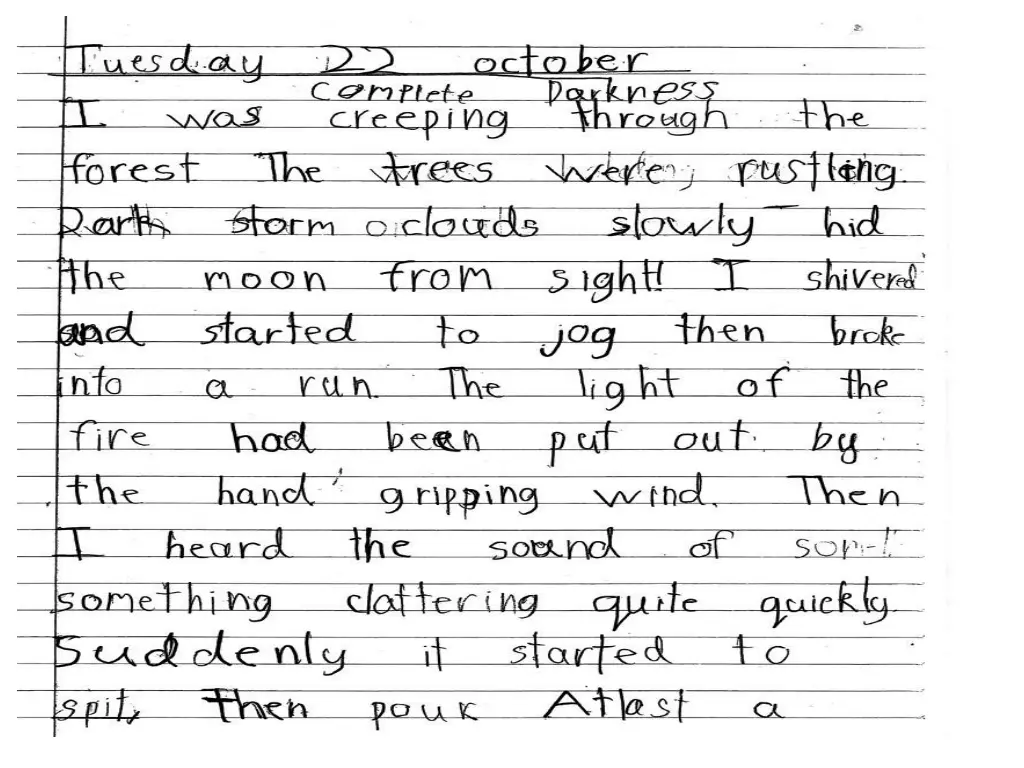 Tuesday 22 october
Complete Darkness
I was creeping through the
forest The trees were, rustling.
Dark storm clouds slowly hid
the moon from sight! I shivered
and started to jog then broke
into a run. The light of the
fire had been put out by
the hand gripping wind. Then
I heard the sound of som
something clattering quite quickly.
Suddenly it started to
spit, Then pour Atlast a